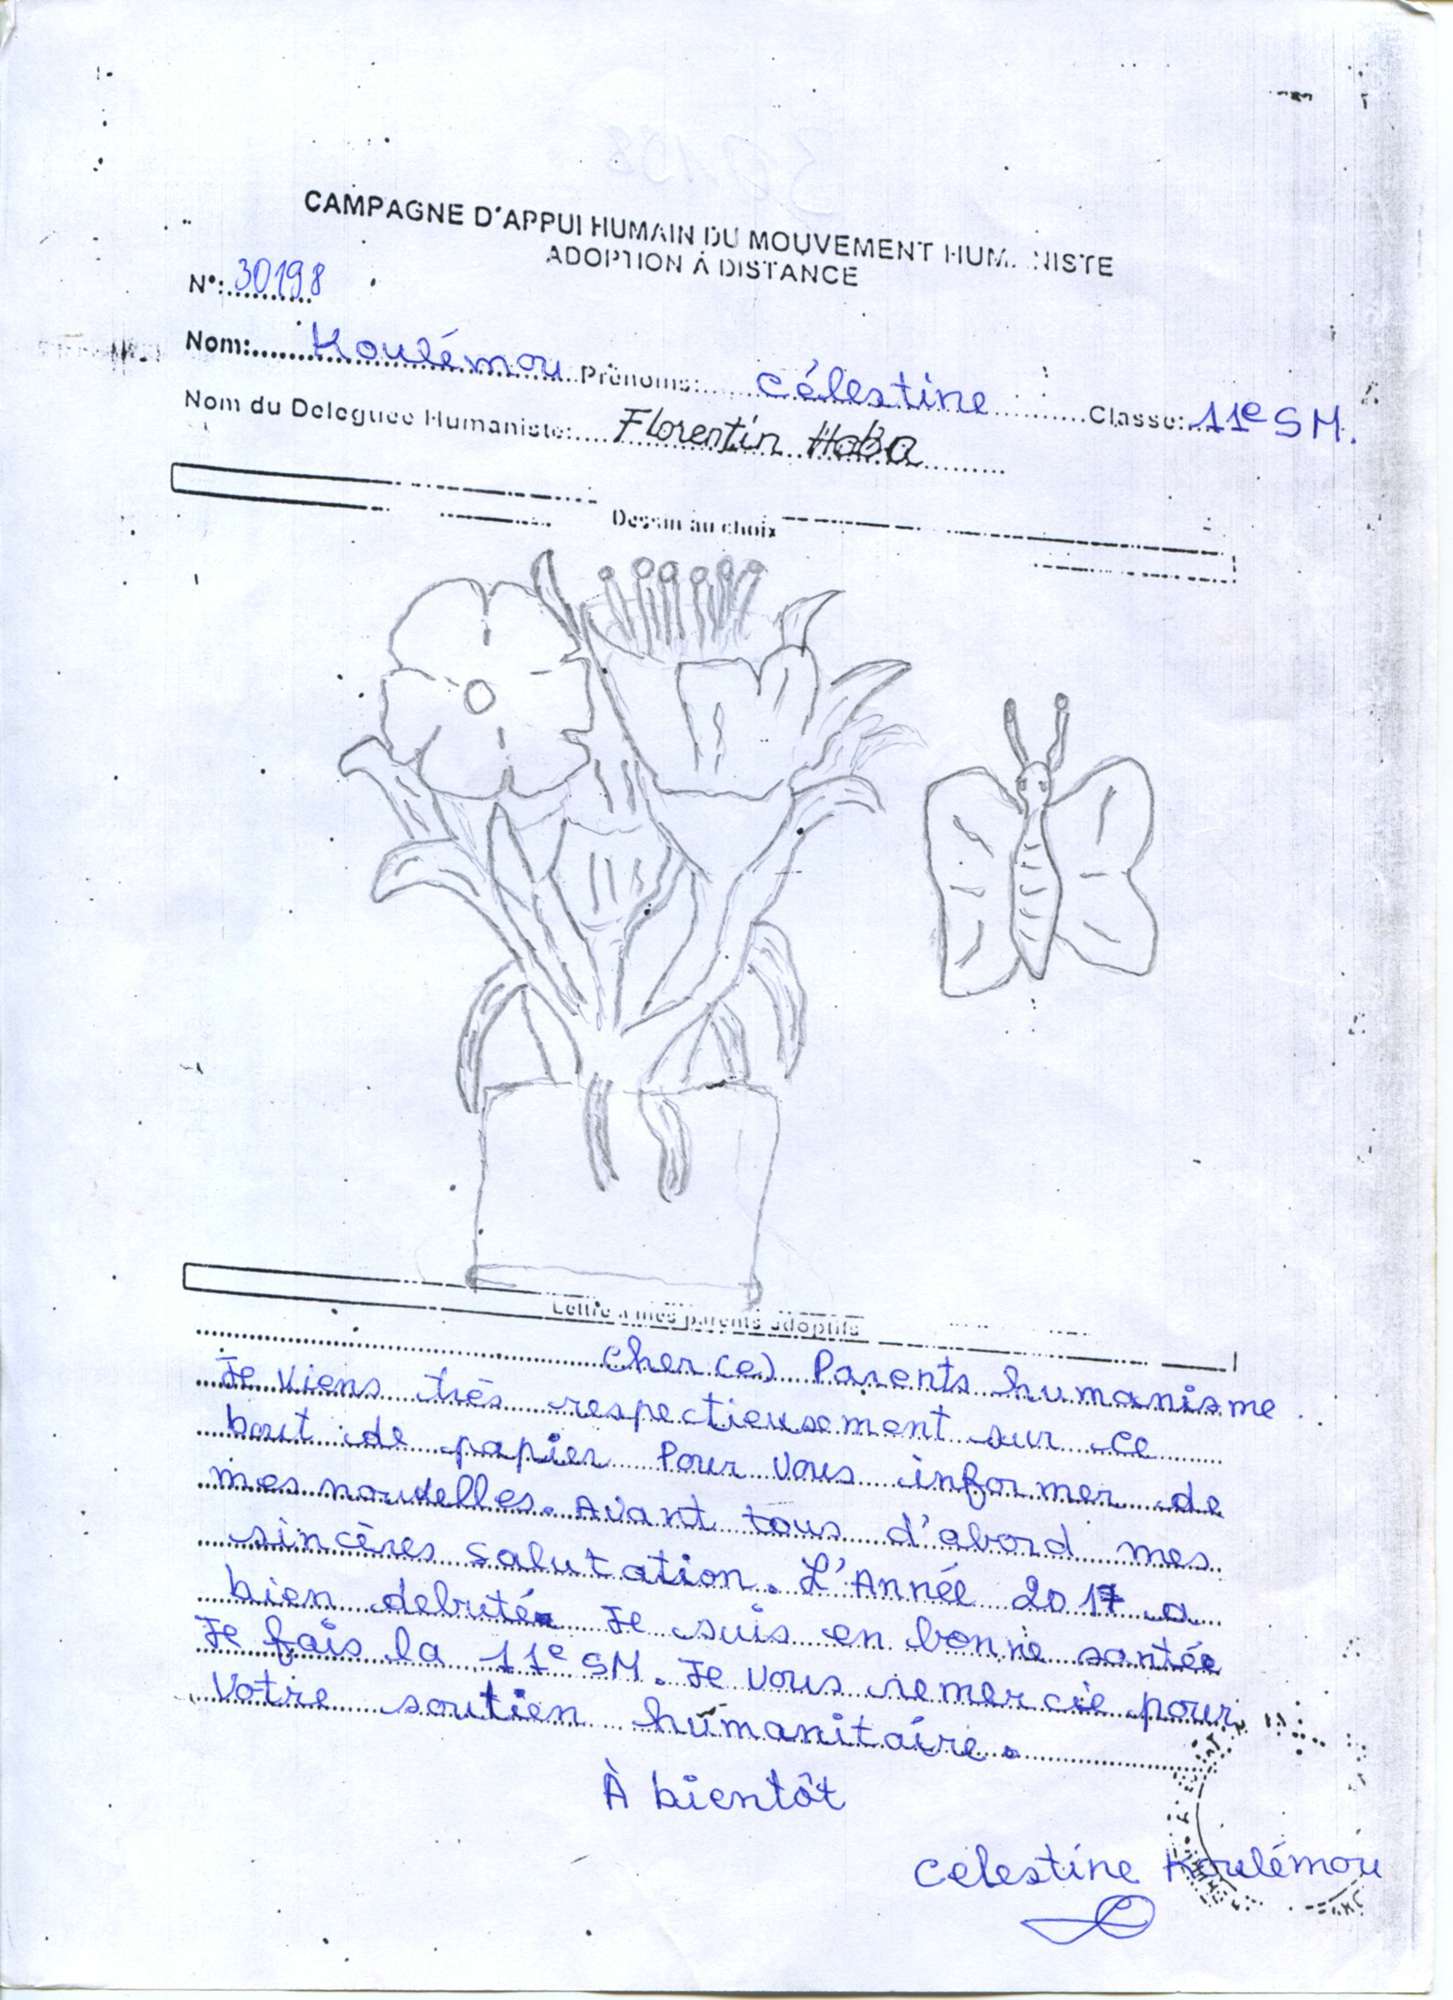 CAMPAGNE D'APPUI HUMAIN DU MOUVEMENT HUM. NISTE
ADOPTION À DISTANCE
N°: 30198
Nom: Koulémou Prénoms: Célestine Classe: 11e SM.
Nom du Deleguée Humaniste: Florentin Haba
Dessin au choix
Lettre a mes parents adoptifs
cher(e) Parents humanisme
Je viens très respectieusement sur ce
bout de papier Pour vous informer de
mes nouvelles. Avant tous d'abord mes
sincères salutation. L'Année 2017 a
bien debuté Je suis en bonne santée
Je fais la 11e SM. Je vous remercie pour
votre soutien humanitaire.
À bientôt
Celestine Koulémou